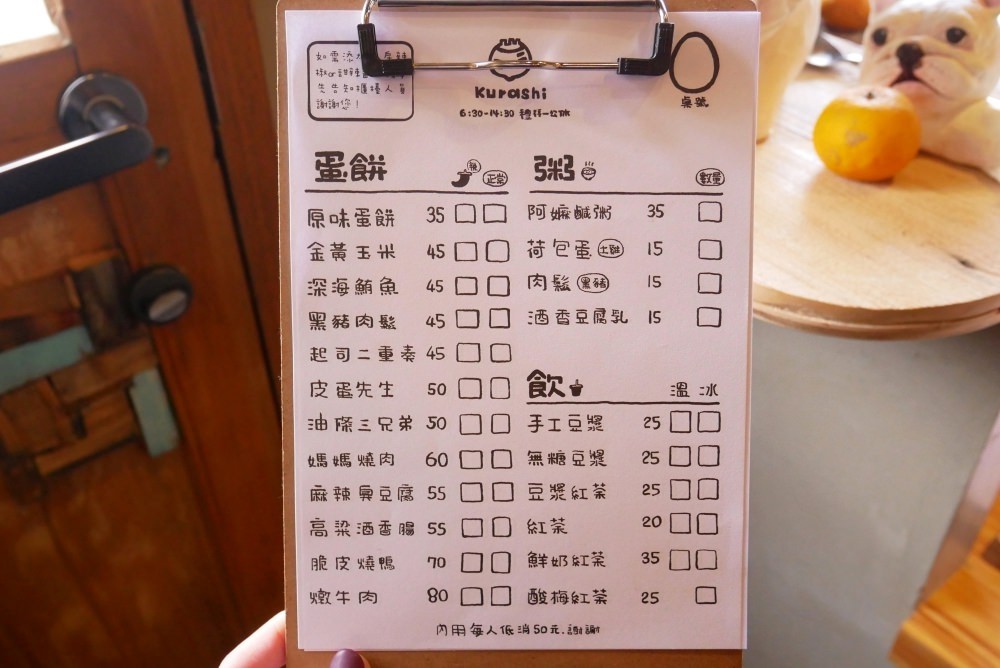 謝謝您！
桌號
kurashi
6:30-14:30 禮拜一公休
蛋餅
正常
原味蛋餅 35
金黃玉米 45
深海鮪魚 45
黑豬肉鬆 45
起司二重奏 45
皮蛋先生 50
油條三兄弟 50
媽媽燒肉 60
麻辣臭豆腐 55
高粱酒香腸 55
脆皮燒鴨 70
燉牛肉 80
粥
數量
阿嬤鹹粥 35
荷包蛋 土雞 15
肉鬆 黑豬 15
酒香豆腐乳 15
飲 溫 冰
手工豆漿 25
無糖豆漿 25
豆漿紅茶 25
紅茶 20
鮮奶紅茶 35
酸梅紅茶 25
內用每人低消50元,謝謝